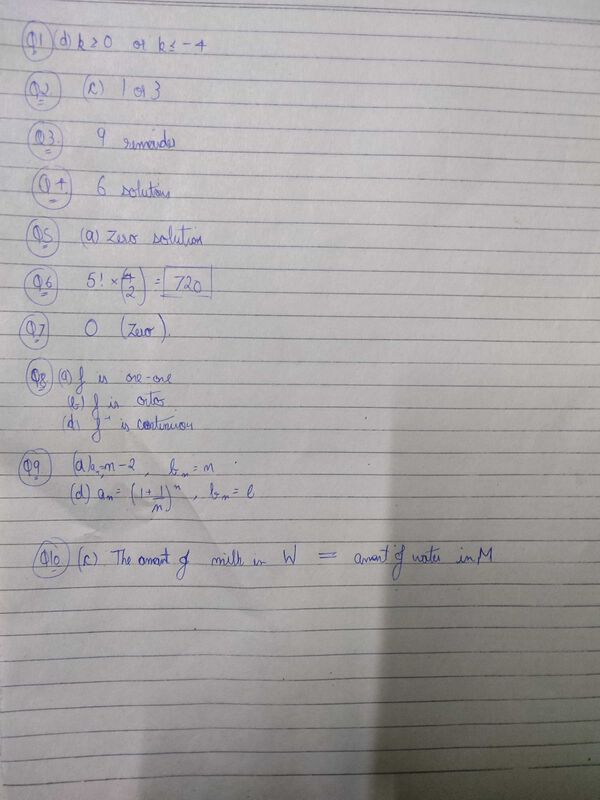 Q1 (d) k ≥ 0 or k ≤ -4
Q2 (c) 1 or 3
Q3. 9 remainder
Q4 6 solutions
Q5 (a) Zero solution
Q6 5! × (4 2) = 720
Q7 0 (Zero).
Q8 (a) f is one-one
(b) f is onto
(d) f⁻¹ is continuous
Q9 (a) = n-2, bₙ = n
(d) aₙ = (1+1/n)ⁿ, bₙ = e
Q10 (c) The amount of milk in W = amount of water in M